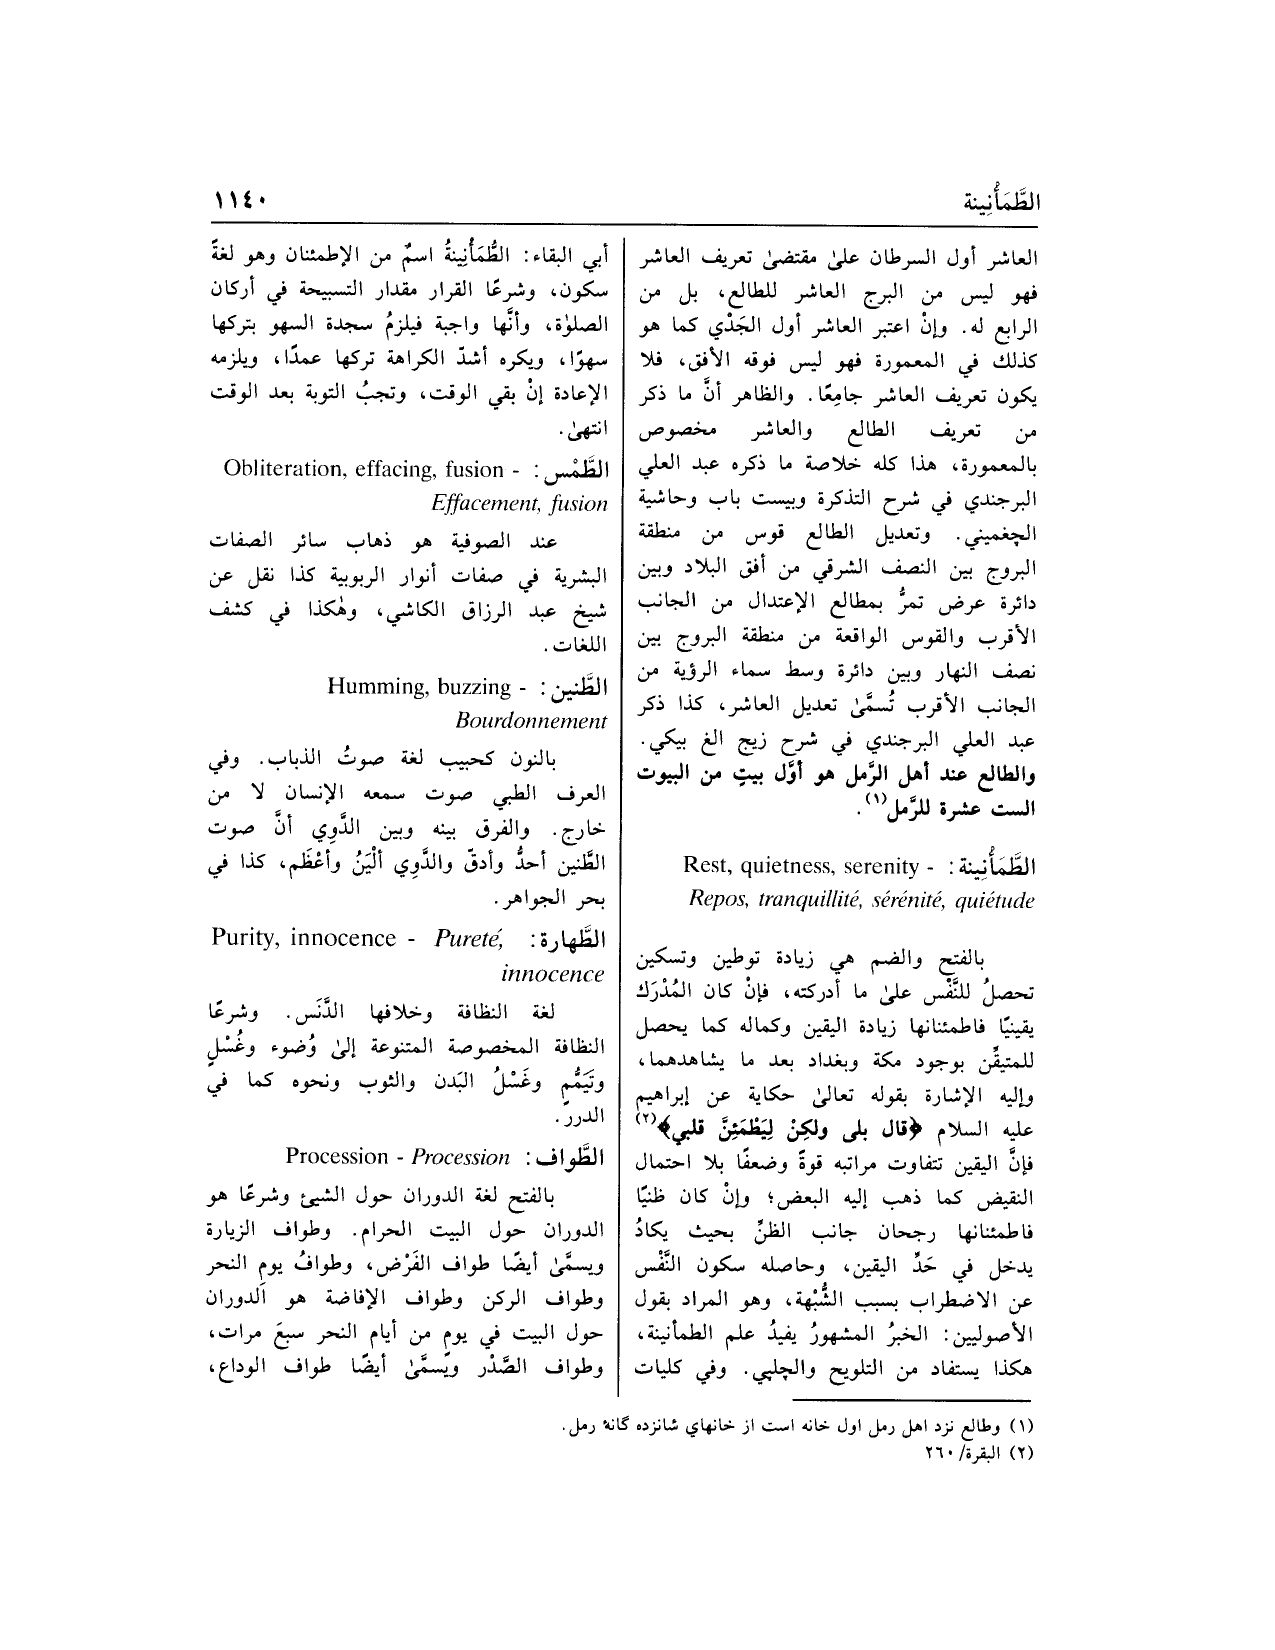 الطَّمَأُنِينة
١١٤٠
العاشر أول السرطان علىٰ مقتضىٰ تعريف العاشر
فهو ليس من البرج العاشر للطالع، بل من
الرابع له. وإنْ اعتبر العاشر أول الجَدْي كما هو
كذلك في المعمورة فهو ليس فوقه الأفق، فلا
يكون تعريف العاشر جامِعًا. والظاهر أنَّ ما ذكر
من تعريف الطالع والعاشر مخصوص
بالمعمورة، هذا كله خلاصة ما ذكره عبد العلي
البرجندي في شرح التذكرة وبيست باب وحاشية
الچغميني. وتعديل الطالع قوس من منطقة
البروج بين النصف الشرقي من أفق البلاد وبين
دائرة عرض تمرُّ بمطالع الإعتدال من الجانب
الأقرب والقوس الواقعة من منطقة البروج بين
نصف النهار وبين دائرة وسط سماء الرؤية من
الجانب الأقرب تُسمَّىٰ تعديل العاشر، كذا ذكر
عبد العلي البرجندي في شرح زيج الغ بيكي.
والطالع عند أهل الرَّمل هو أوَّل بيتٍ من البيوت
الست عشرة للرَّمل(١).
الطَّمَأُنِينة: - Rest, quietness, serenity
Repos, tranquillité, sérénité, quiétude
بالفتح والضم هي زيادة توطين وتسكين
تحصلُ للنَّفْس علىٰ ما أدركته، فإنْ كان المُدْرَك
يقينيًا فاطمئنانها زيادة اليقين وكماله كما يحصل
للمتيقِّن بوجود مكة وبغداد بعد ما يشاهدهما،
وإليه الإشارة بقوله تعالىٰ حكاية عن إبراهيم
عليه السلام ﴿قال بلى ولكِنْ لِيَطْمَئِنَّ قلبي﴾(٢)
فإنَّ اليقين تتفاوت مراتبه قوةً وضعفًا بلا احتمال
النقيض كما ذهب إليه البعض؛ وإنْ كان ظنيًا
فاطمئنانها رجحان جانب الظنِّ بحيث يكادُ
يدخل في حَدِّ اليقين، وحاصله سكون النَّفْس
عن الاضطراب بسبب الشُّبْهة، وهو المراد بقول
الأصوليين: الخبرُ المشهورُ يفيدُ علم الطمأنينة،
هكذا يستفاد من التلويح والچلپي. وفي كليات
أبي البقاء: الطُّمَأْنِينةُ اسمٌ من الإطمئنان وهو لغةً
سكون، وشرعًا القرار مقدار التسبيحة في أركان
الصلوٰة، وأنَّها واجبة فيلزمُ سجدة السهو بتركها
سهوًا، ويكره أشدّ الكراهة تركها عمدًا، ويلزمه
الإعادة إنْ بقي الوقت، وتجبُ التوبة بعد الوقت
انتهىٰ.
الطَّمْس: - Obliteration, effacing, fusion
Effacement, fusion
عند الصوفية هو ذهاب سائر الصفات
البشرية في صفات أنوار الربوبية كذا نقل عن
شيخ عبد الرزاق الكاشي، وهٰكذا في كشف
اللغات.
الطَّنين: - Humming, buzzing
Bourdonnement
بالنون كحبيب لغة صوتُ الذباب. وفي
العرف الطبي صوت سمعه الإنسان لا من
خارج. والفرق بينه وبين الدَّوِي أنَّ صوت
الطَّنين أحدُّ وأدقّ والدَّوِي ألْيَنُ وأعْظَم، كذا في
بحر الجواهر.
الطَّهارة: Purity, innocence - Pureté,
innocence
لغة النظافة وخلافها الدَّنَس. وشرعًا
النظافة المخصوصة المتنوعة إلىٰ وُضوء وغُسْلٍ
وتَيَمُّمٍ وغَسْلُ البَدن والثوب ونحوه كما في
الدرر.
الطَّواف: Procession - Procession
بالفتح لغة الدوران حول الشيئ وشرعًا هو
الدوران حول البيت الحرام. وطواف الزيارة
ويسمَّىٰ أيضًا طواف الفَرْض، وطوافُ يومِ النحر
وطواف الركن وطواف الإفاضة هو الدوران
حول البيت في يوم من أيام النحر سبعَ مرات،
وطواف الصَّدْر ويُسمَّىٰ أيضًا طواف الوداع،
(١) وطالع نزد اهل رمل اول خانه است از خانهاي شانزده گانۀ رمل.
(٢) البقرة/ ٢٦٠